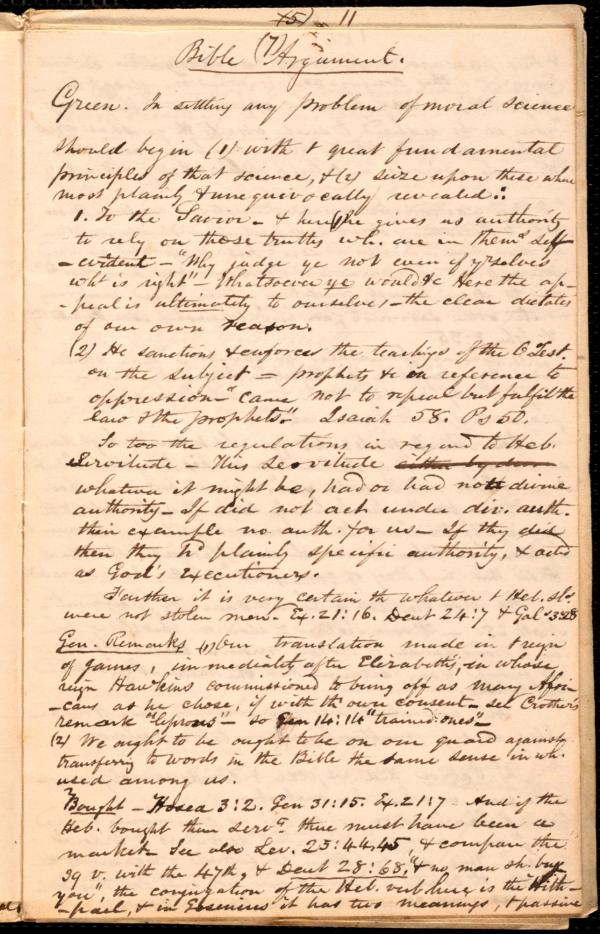 (5) 11
(7)
Bible Argument.
Green. In settling any problem of moral science
should begin (1) with t great fundamental
principles of that science, & (2) seize upon these where
most plainly & unequivocally revealed:
1. To the Savior - & here (1) he gives us authority
to rely on those truths wh. are in thems self
-evident - "Why judge ye not even of yrselves
wht is right" - Whatsoever ye would &c Here the ap-
-peal is ultimately to ourselves - the clear dictates
of our own reason.
(2) He sanctions & enforces the teachings of the O Test.
on the subject = prophets &c in reference to
oppression - "came not to repeal but fulfil the
law & the prophets." Isaiah 58. Ps 50.
So too the regulations in regard to Heb.
Servitude - This servitude either by
whatever it might be, had or had not divine
authority - If did not act under div. auth.
their example no auth. for us - If they did
then they hd plainly specific authority, & acted
as God's executioners.
Farther it is very certain th whatever t Heb. sls
were not stolen men. Ex. 21:16. Deut 24:7 & Gal 3:28
Gen. Remarks (1) Our translation made in t reign
of James, immediately after Elizabeth's, in whose
reign Hawkins commissioned to bring off as many Afri-
-cans as he chose, if with th own consent - see Crothers
remark "leprous" - so Gen 14:14 "trained ones" -
(2) We ought to be ought to be on our guard against
transferring to words in the Bible the same sense in wh.
used among us.
Bought - Hosea 3:2. Gen 31:15. Ex. 21:7 - And if the
Heb. bought their servts. there must have been a
market. See also Lev. 25:44,45 & compare the
39 v. with the 47th, & Deut 28:68, "& no man sh. buy
you", the conjugation of the Heb. verb here is the Hith-
-pael, & in Gesenius it has two meanings, t passive